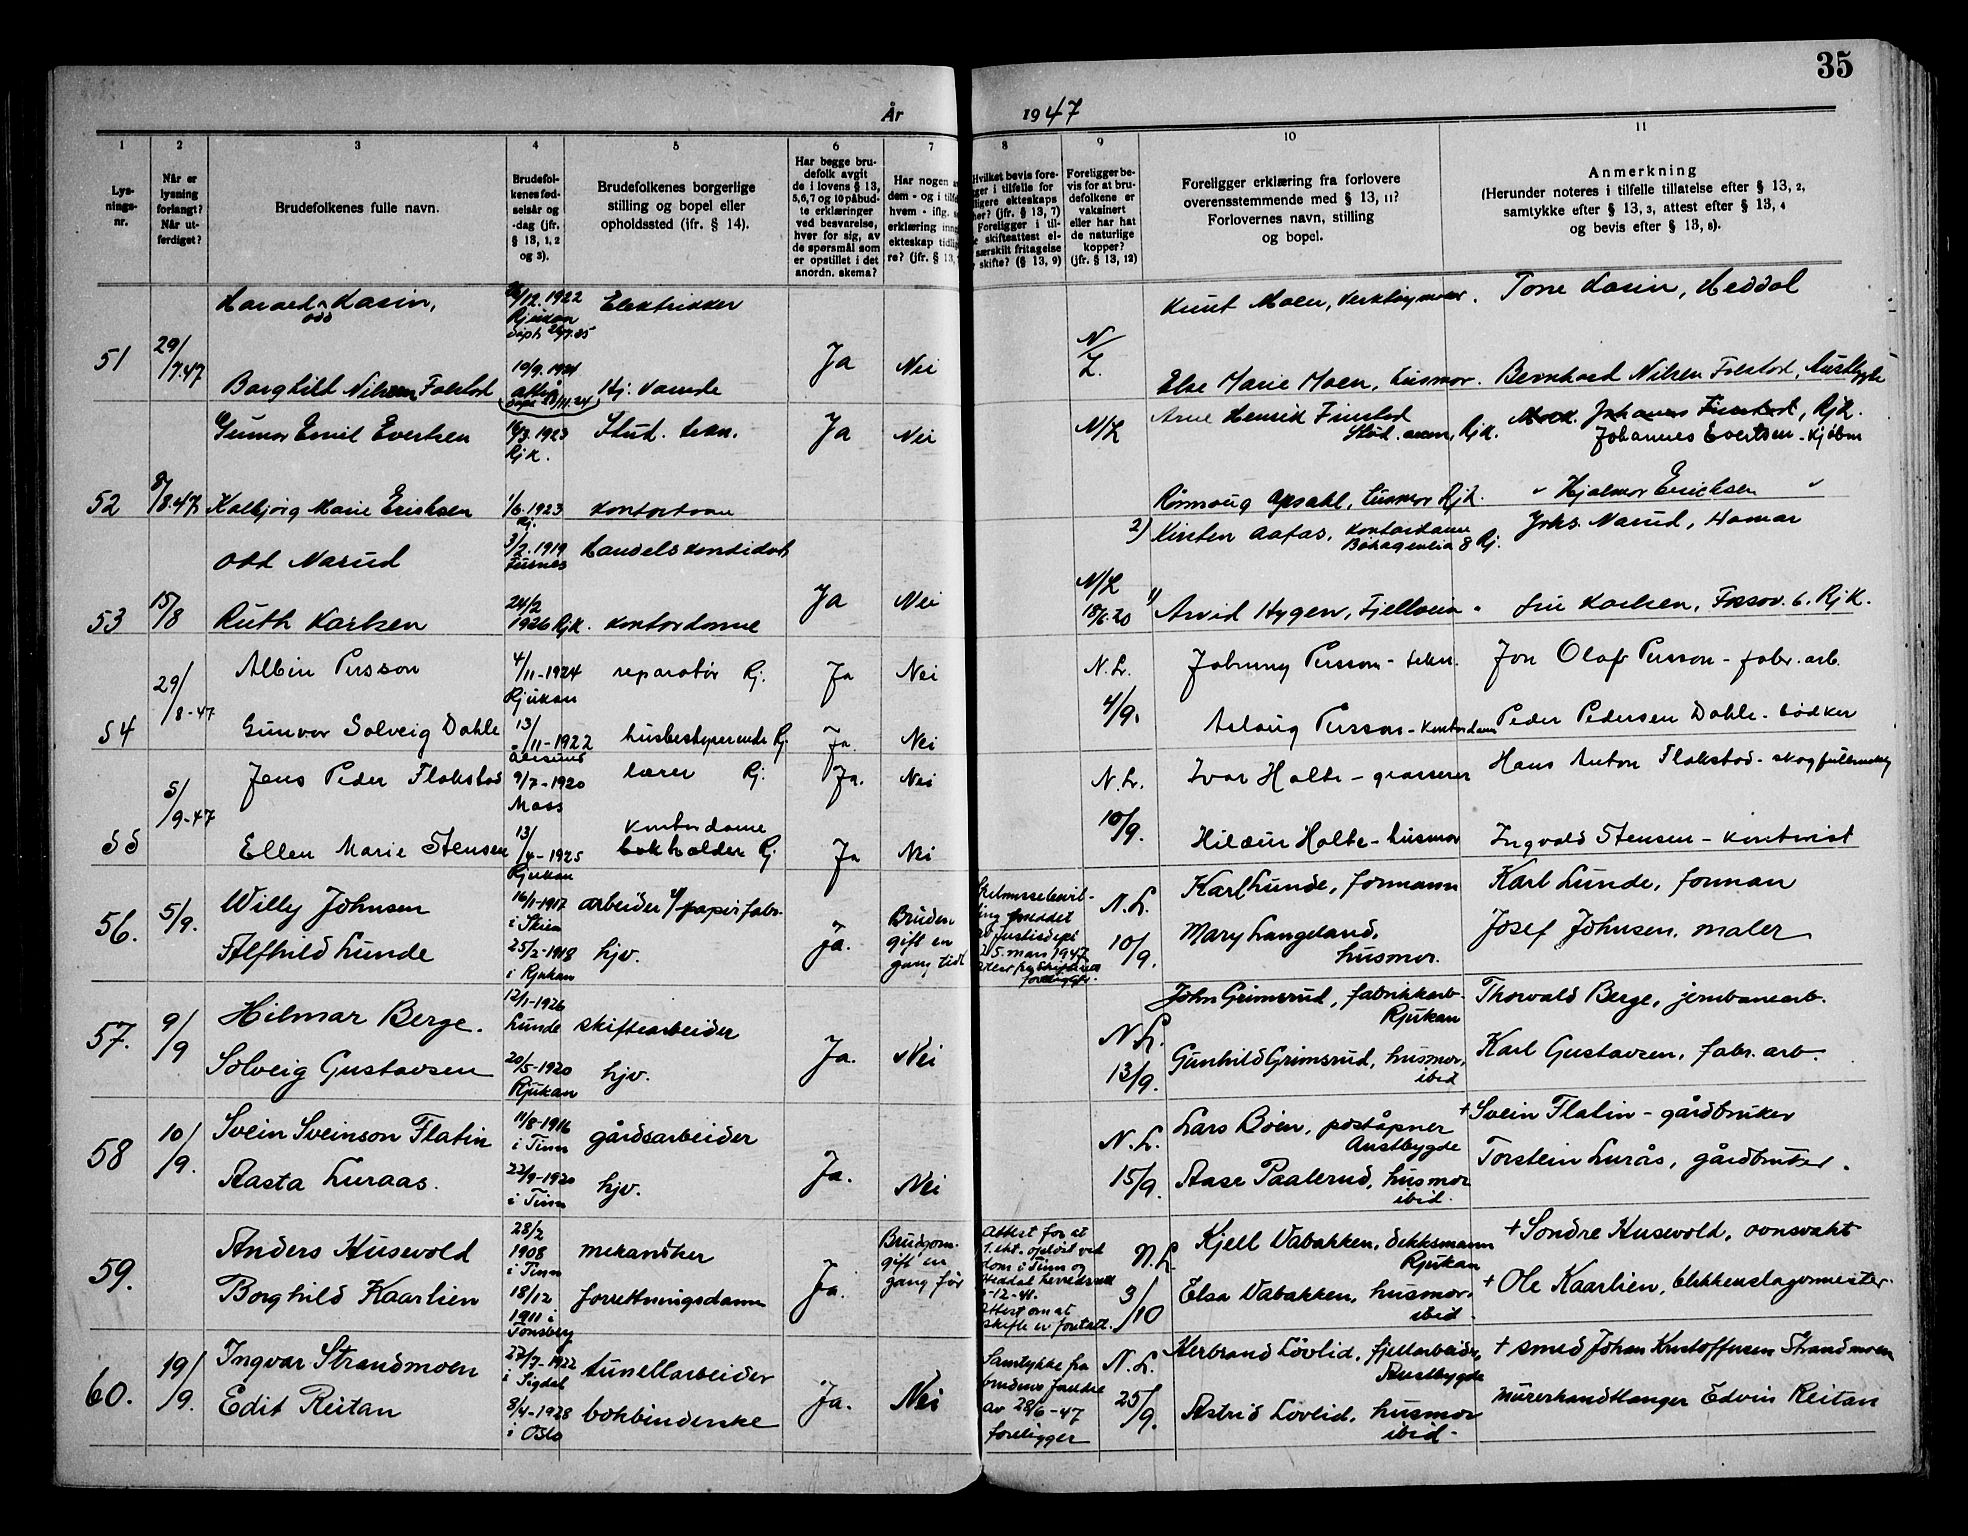 35
År 1947
1 2 3 4 5 6 7 8 9 10 11
Lys-
nings-
nr.
Når er
lysning
forlangt?
Når ut-
ferdiget?
Brudefolkenes fulle navn.
Brudefol-
kenes fød-
selsår og
-dag (jfr.
§ 13, 1, 2
og 3).
Brudefolkenes borgerlige
stilling og bopel eller
opholdssted (jfr. § 14).
Har begge bru-
defolk avgit
de i lovens § 13,
5,6,7 og 10 påbud-
te erklæringer
ved besvarelse,
hver for sig, av
de spørsmål som
er opstillet i det
anordn. skema?
Har nogen
dem - og i tilf
hvem - iflg.
erklæring inng
ekteskap tidlig
re? (jfr. § 13,
Hvilket bevis fore-
ger i tilfelle for
ligere ekteskaps
her? (jfr. § 13, 7)
Foreligger i til-
e skifteattest el-
særskilt fritagelse
skifte? (§ 13, 9)
Foreligger be-
vis for at bru-
defolkene er
vaksinert
eller har hat
de naturlige
kopper?
(jfr. § 13, 12)
Foreligger erklæring fra forlovere
overensstemmende med § 13, 11?
Forlovernes navn, stilling
og bopel.
Anmerkning
(Herunder noteres i tilfelle tillatelse efter § 13, 2,
samtykke efter § 13, 3, attest efter § 13, 4
og bevis efter § 13, 8).
51 29/7.47 Kasin, odd /12.1922 Rjukan Elektrikker Ja Nei N/L. Knut Moen, Tone Kasin, Heddal
Borghild Nilsen 19/9.1924 Hj. Else Marie Moen, husmor. Bernhard Nilsen
52 8/8.47 Gunnar Emil Evertsen 16/3.1923 Rjk. Stud. Ja Nei N/L Arne Henrik Rjk. Johannes Evertsen
Marie Eriksen 1/6.1923 Rj. kontordame Opsahl, husmor Rjk. " Hjalmar Ericksen "
53 15/8 Odd Narud 3/2.1919 Furnes Handelskandidat Ja Nei N/L 2) Kirsten Aafas, kontordame 8 Rj. Johs. Narud, Hamar
Ruth Karlsen 24/2 1926 Rjk. kontordame 18/6.20 1) Arvid Hygen, Karlsen, 6. Rjk.
54 29/8-47 Albin Persson 4/11-1924 Rjukan reparatør Rj. Ja Nei N.L. Johnny Persson - Jon Olof Persson - fabr.arb.
Gunvor Solveig Dahle 13/11-1922 Ålesund husbestyrerinde Rj. Ja. Nei 4/9. Aslaug Persson - kontordame Peder Pedersen Dahle - bødker
55 5/9-47 Jens Peder Flakstad 9/7-1920 Moss lærer Rj. Ja. Nei N.L. Ivar Holte - grosserer Hans Anton Flakstad - skogfullmektig
Ellen Marie Stensen 13/4-1925 Rjukan kontordame bokholder Rj Ja Nei 10/9. Hildur Holte - husmor Ingvald Stensen - kontorist
56. 5/9. Willy Johnsen 16/1-1917 i Skien arbeider v/ papirfabr. Ja. Bruden gift en gang tidl N.L. Karl Lunde, formann Karl Lunde, forman
Alfhild Lunde 25/2-1918 i Rjukan hjv. Justisdept 25. mars 1947 foreligger. 10/9. Mary Langeland, husmor. Josef Johnsen, maler
57. 9/9 Hilmar Berge. 12/1-1926 Lunde skiftearbeider Ja. Nei N.L. John Grimsrud, fabrikkarb. Rjukan Thorvald Berge, jernbanearb.
Solveig Gustavsen 20/5-1920 Rjukan hjv. 13/9. Gunhild Grimsrud, husmor, ibid Karl Gustavsen, fabr. arb.
58 10/9. Svein Sveinson Flatin 11/8-1916 i Tinn gårdsarbeider Ja. Nei N.L. Lars Bøen, poståpner Austbygde +Svein Flatin - gårdbruker
Aasta Luraas. 22/9-1920 i Tinn hjv. 15/9. Aase Paalerud, husmor ibid. Torstein Lurås, gårdbruker.
59. Anders Husevold 28/2 1908 i Tinn mekaniker Ja. Brudgom. gift en gang før Attest for at 1. ekt. opløst ved dom i Tinn og Heddal herredsrett -12-41. Attest om at skifte er foretatt. N.L. Kjell Vabakken, dekksmann Rjukan + Sondre Husevold, ovnsvakt
Borghild Kaarlien 18/12 1911 i Tønsberg forretningsdame 3/10 Elsa Vabakken, husmor. ibid + Ole Kaarlien, blikkenslagermester.
60. 19/9. Ingvar Strandmoen 27/7-1922 i Sigdal tunellarbeider Ja. Nei Samtykke fra brudens foreldre av 28/6-47 foreligger N.L. Herbrand Løvlid, fjellarbeider, Austbygde + smed Johan Kristoffersen Strandmoen
Edit Reitan 8/4-1928 i Oslo bokbinderske 25/9. Astrid Løvlid, husmor ibid- murerhandtlanger Edvin Reitan